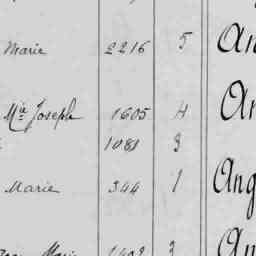 Marie 2216 5 An
Mie Joseph 1605 4 An
1081 3
Marie 344 1 Ang
Marie 3 An